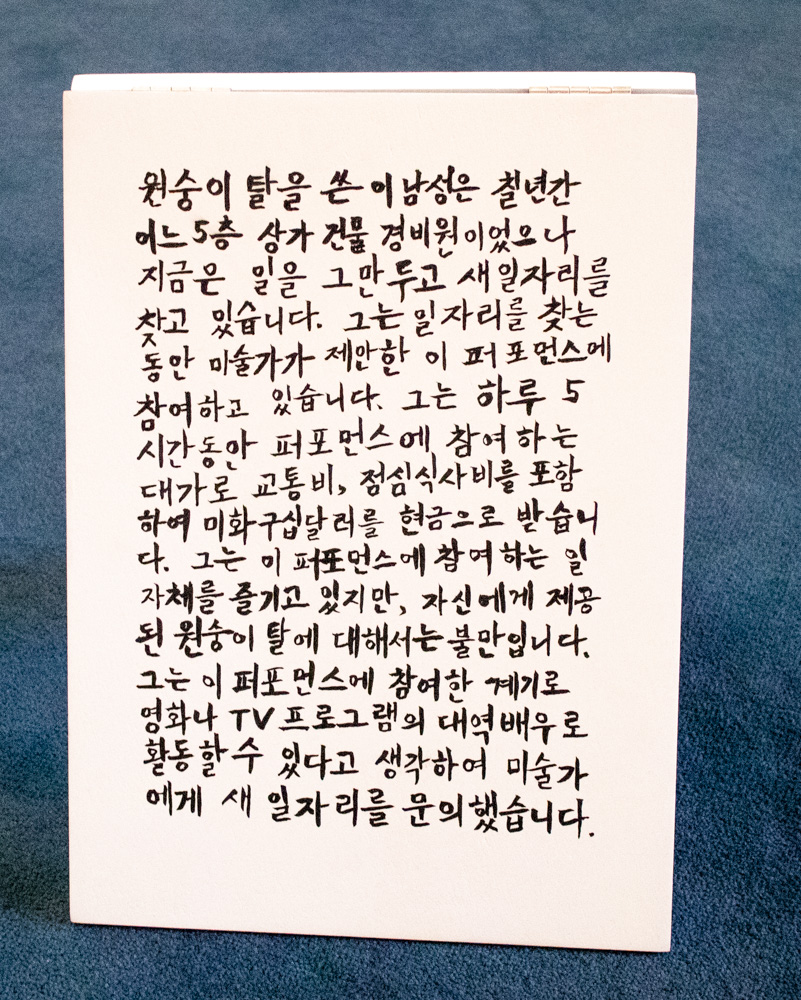 원숭이 탈을 쓴 이 남성은 칠년간
어느 5층 상가 건물 경비원이었으나
지금은 일을 그만두고 새일자리를
찾고 있습니다. 그는 일자리를 찾는
동안 미술가가 제안한 이 퍼포먼스에
참여하고 있습니다. 그는 하루 5
시간동안 퍼포먼스에 참여하는
대가로 교통비, 점심식사비를 포함
하여 미화구십달러를 현금으로 받습니
다. 그는 이 퍼포먼스에 참여하는 일
자체를 즐기고 있지만, 자신에게 제공
된 원숭이 탈에 대해서는 불만입니다.
그는 이 퍼포먼스에 참여한 계기로
영화나 TV 프로그램의 대역배우로
활동할 수 있다고 생각하여 미술가
에게 새 일자리를 문의했습니다.